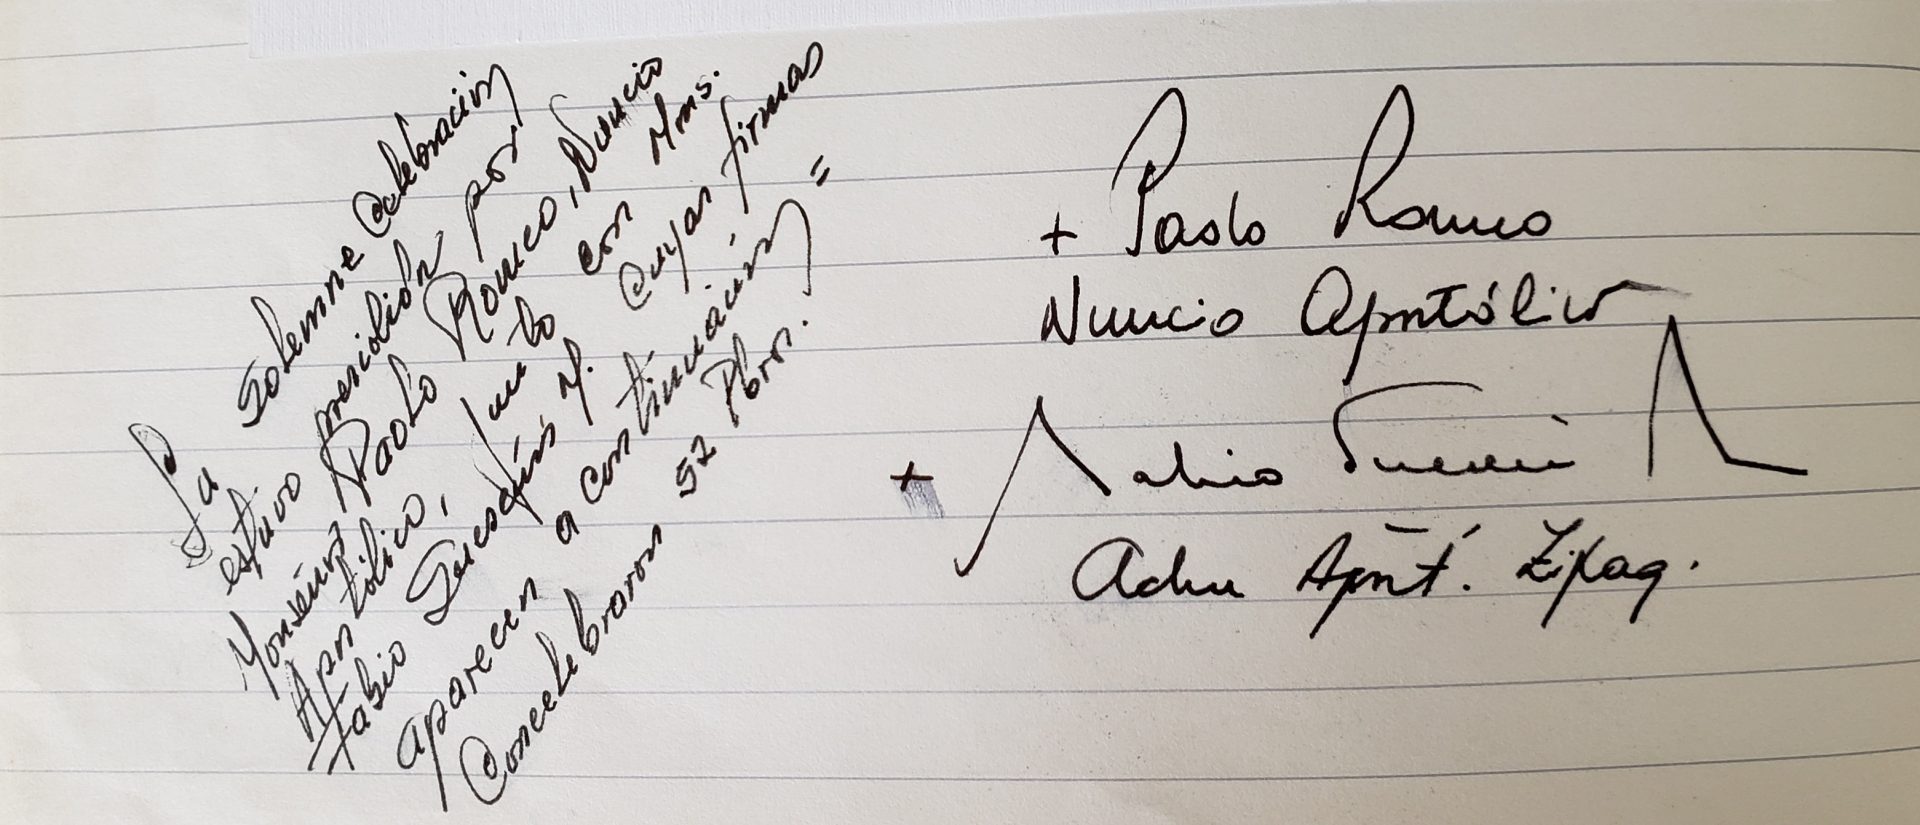 La solemne celebración
estuvo presidida por
Monseñor Paolo Romeo, Nuncio
Apostólico, junto con Mons.
Fabio Suescún M. cuyas firmas
aparecen a continuación =
Concelebraron 52 Pbros.
+ Paolo Romeo
Nuncio Apostólico
+ Fabio Suescún M
Adm Apost. Zipaq.